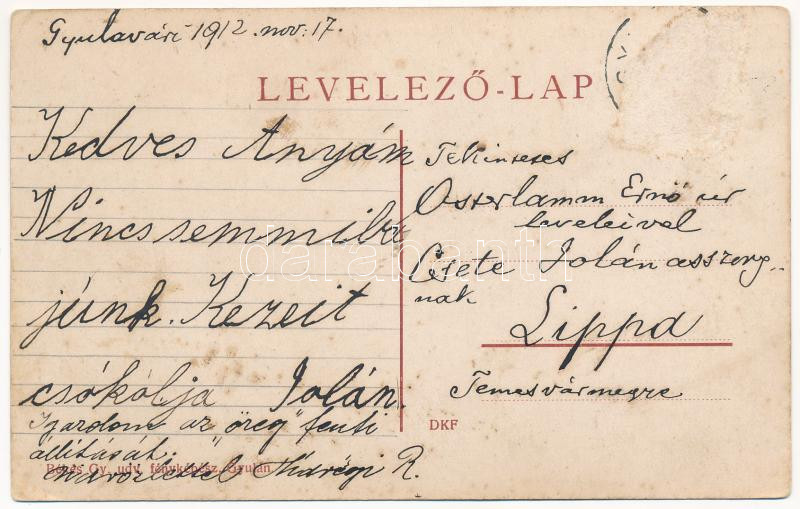 Gyulavári 1912. nov. 17.
LEVELEZŐ-LAP
Kedves Anyám
Nincs semmi ba
junk. Kezeit
csókolja Jolán.
Igazolom az "öreg" fenti
állítását.
Békés Gy. udv. fényképész, Gyulán
R.
Tekintetes
Osterlamm Ernő úr
leveleivel
Csete Jolán asszony-
nak
Lippa
Temesvármegye
DKF
darabanth